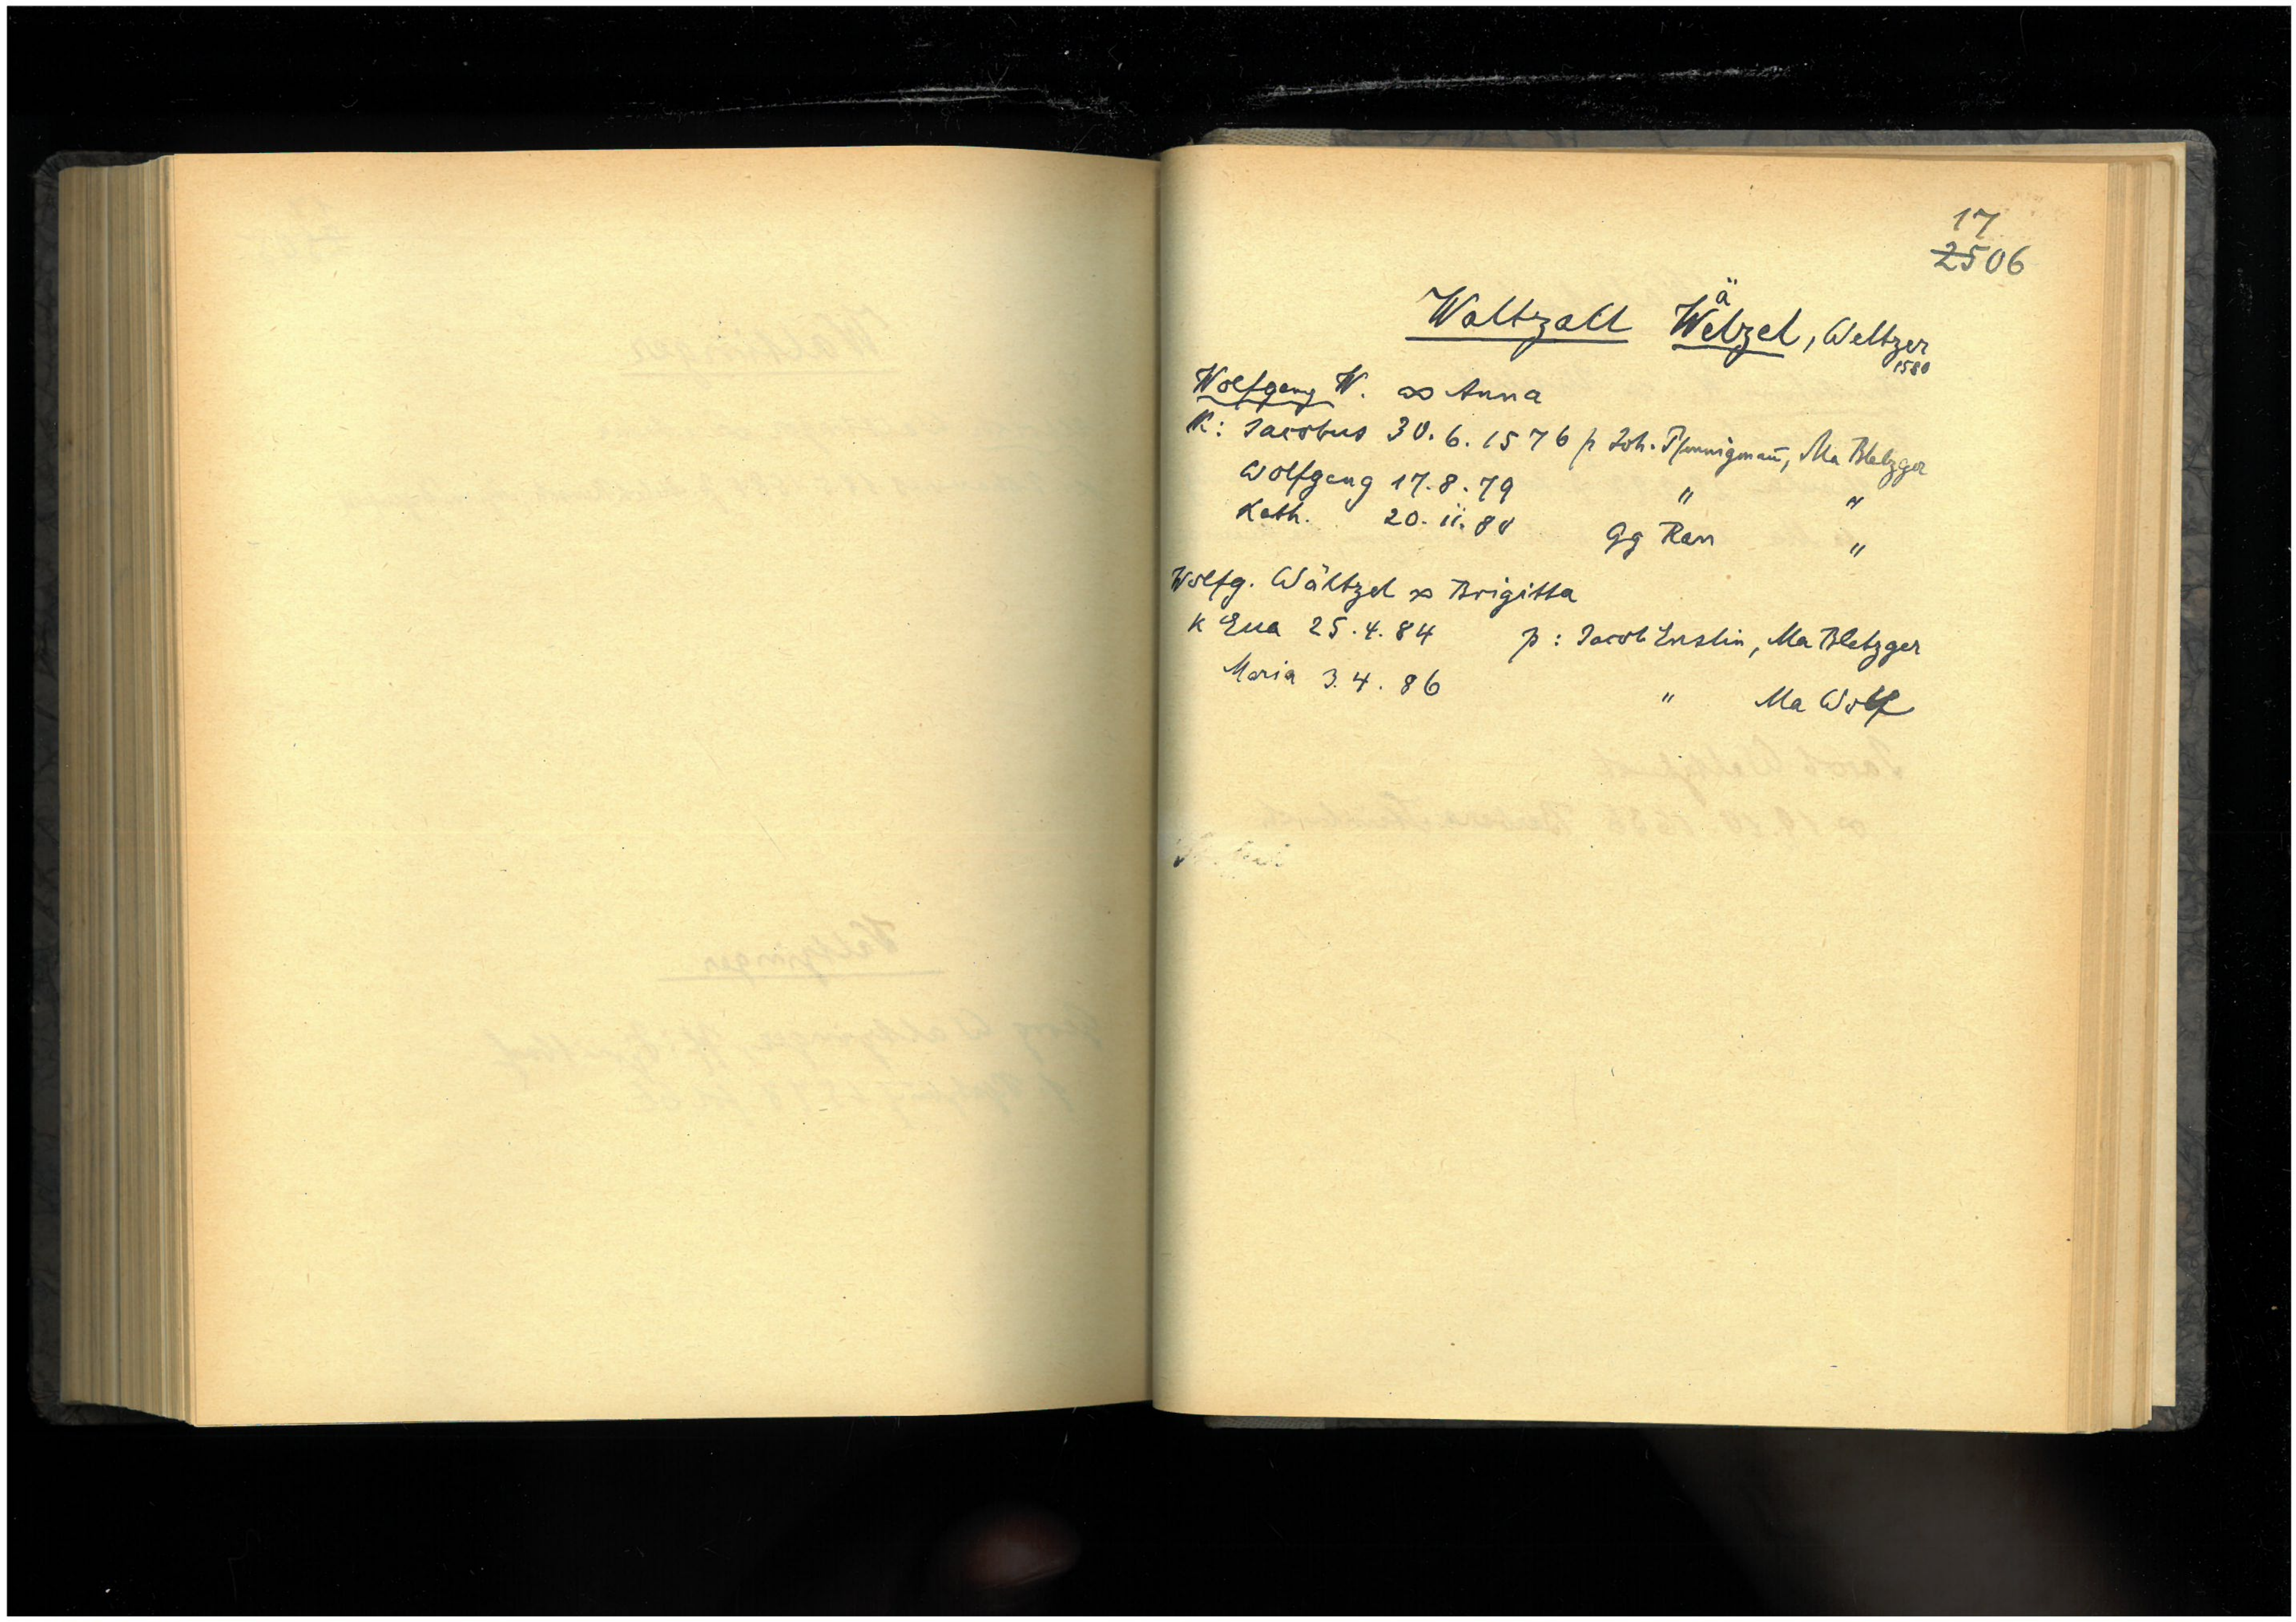 17
2506
Waltzall Welzel, Weltzer
ä
1580
Wolfgang W. ∞ Anna
K: Jacobus 30. 6. 1576 p Joh. Pfennigmañ, Ma Bletzger
Wolfgang 17. 8. 79 " "
Kath. 20. 11. 80 Gg Ran "
Wolfg. Wältzel ∞ Brigitta
K Eua 25. 4. 84 p: Jacob Enslin, Ma Bletzger
Maria 3. 4. 86 " Ma Wolf